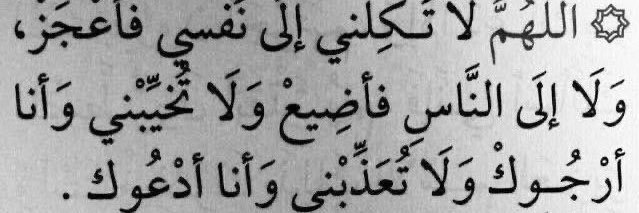 ۞ اللَّهُمَّ لَا تَكِلْني إلَى نَفْسي فَأعْجَزْ،
وَلَا إلَى النَّاسِ فأضِيعْ وَلَا تُخيِّبْني وَأنا
أرْجُـوكْ وَلَا تُعَذِّبْني وَأنا أدْعُوك .